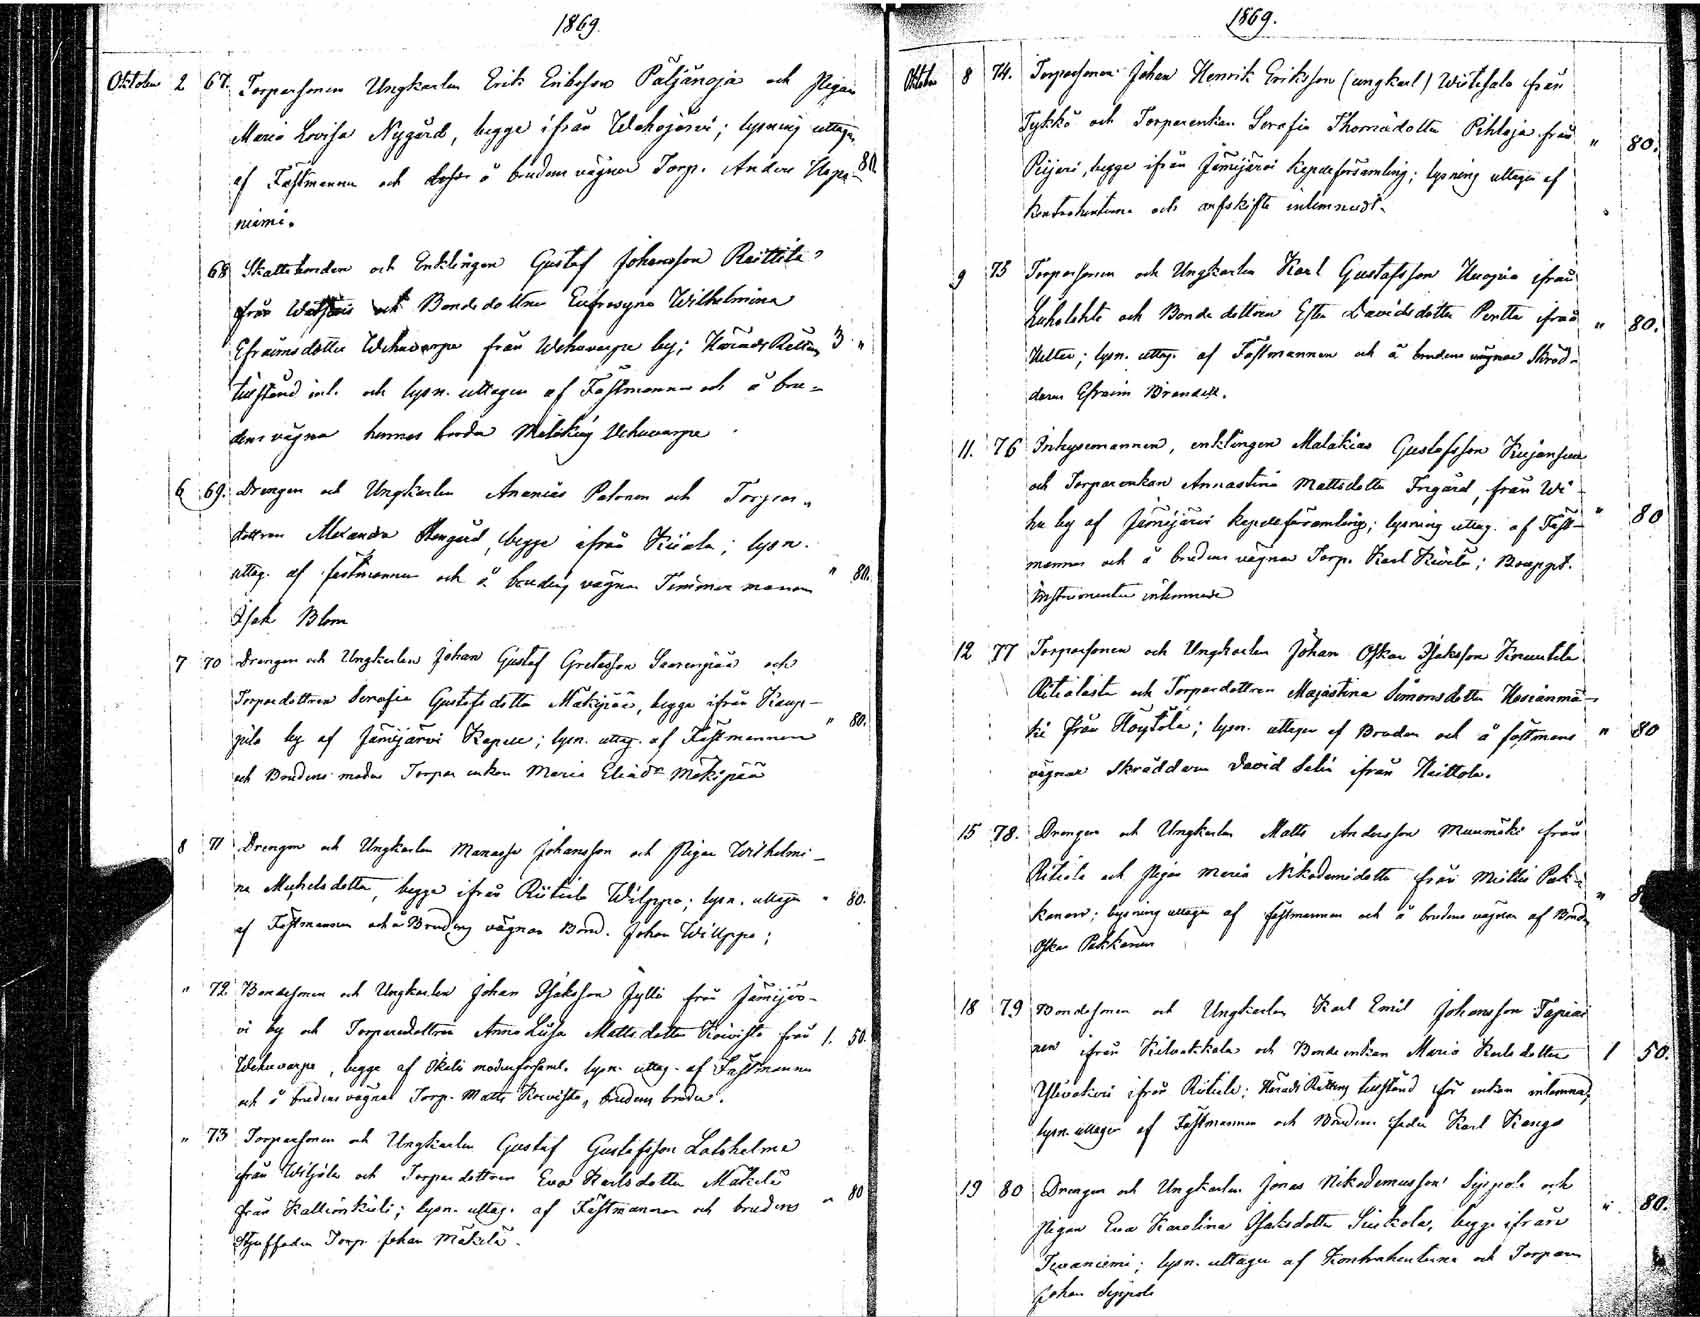 1869.
Oktober 2 67. Torparsonen Ungkarlen Erik Eriksson Päljänoja och Pigan
Maria Lovisa Nygård, begge ifrån Wehojärvi; lysning uttagen
af Fästmannen och å brudens vägnar Torp. Anders Hapa- 80.
niemi.
68 Skattebonden och Enklingen Gustaf Johansson Raittila
från och Bondedottren Eufrosyna Wilhelmina
Efraimsdotter Wehuvarpe från Wehuvarpe by; HäradsRättens 3 "
tillstånd inl. och lysn. uttagen af Fästmannen och å bru-
dens vägnar hennes broder Wehuvarpe
6 69. Drengen och Ungkarlen Ananias Pelonen och Torpar-
dottren Alexandra begge ifrån Kiiala; lysn.
uttag. af fästmannen och å brudens vägnar Timmerman " 80.
Isak Blom
7 70 Drengen och Ungkarlen Johan Gustaf Gretasson Saarenpää och
Torpardottren Serafia Gustafsdotter Mäkipää, begge ifrån Kaup-
pila by af Jämijärvi Kapell; lysn. uttag. af Fästmannen " 80.
och Brudens moder Torpar enkan Maria Eliædr Mäkipää
8 71 Drengen och Ungkarlen Manasse Johansson och Pigan Wilhelmi-
na Michelsdotter, begge ifrån Riitiala Wilppo; lysn. uttagen " 80.
af Fästmannen och å Brudens vägnar Bond. Johan Willppo;
" 72. Bondesonen och Ungkarlen Johan Isaksson Jylli från Jämijär-
vi by och Torparedottren Anna Lisa Mattsdotter Koivisto från 1. 50.
Wehuvarpe, begge af Ikalis moderförsaml. lysn. uttag. af Fästmannen
och å brudens vägnar Torp. Matts Koivisto, brudens broder.
" 73 Torparsonen och Ungkarlen Gustaf Gustafsson Latohelma
från Wiljala och Torpardottren Eva Karlsdotter Mäkelä
från Kallionkieli; lysn. uttag. af Fästmannen och brudens " 80
Styffader Torp. Johan Mäkelä.
1869.
Oktober 8 74. Torparsonen Johan Henrik Eriksson (ungkarl) Wiitasalo från
Tykkö och Torparenkan Serafia Thomædotter Pihlaja från " 80.
begge ifrån Jämijärvi Kapellförsamling; lysning uttagen af
Kontrahenterna och arfskifte inlemnadt.
9 75 Torparsonen och Ungkarlen Karl Gustafsson Kuopia ifrån
Luhalahti och Bonde dottren Ester Davidsdotter Pentti ifrån " 80.
lysn. uttag. af Fästmannen och å brudens vägnar Skräd-
daren Efraim Brandell.
11. 76 Inhysemannen, enklingen Malakias Gustafsson Kujansuu
och Torparenkan Annastina Mattsdotter Frigård, från Wi-
hu by af Jämijärvi Kapellförsamling; lysning uttag. af Fäst- " 80
mannen och å brudens vägnar Torp. Karl Kivelä; Bouppt.
instrumenter inlemnade
12 77 Torparsonen och Ungkarlen Johan Oskar Isaksson
och Torpardottren Majastina Simonsdotter Harjanmä-
ki från Höytölä; lysn. uttagen af Bruden och å fästmans " 80
vägnar Skräddaren David Selin ifrån Heittola.
15 78. Drengen och Ungkarlen Matts Andersson Muumäki från
Riitiala och Pigan Maria Nikodemidotter från Miettis Park-
kanow; lysning uttagen af fästmannen och å brudens vägnar af Bond. " 8
Oskar Pakkanen
18 79 Bondesonen och Ungkarlen Karl Emil Johansson Tapiai
nen ifrån Kilvakkala och Bondeenkan Maria Karlsdotter 1 50.
Ylivakeri ifrån Riitiala; HäradsRättens tillstånd för enkan inlemnad,
lysn. uttagen af Fästmannen och Brudens fader Karl Kangs
19 80 Drengen och Ungkarlen Jonas Nikodemusson Syppola och
Pigan Eva Karolina Isaksdotter Siukola, begge ifrån " 80.
Tevaniemi; lysn. uttagen af Kontrahenterna och Torparen
Johan Syppola